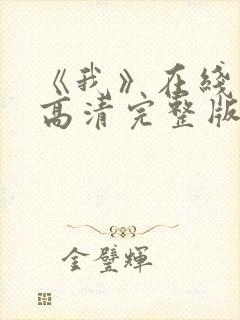 《我》在线
高清完整版
金璧辉